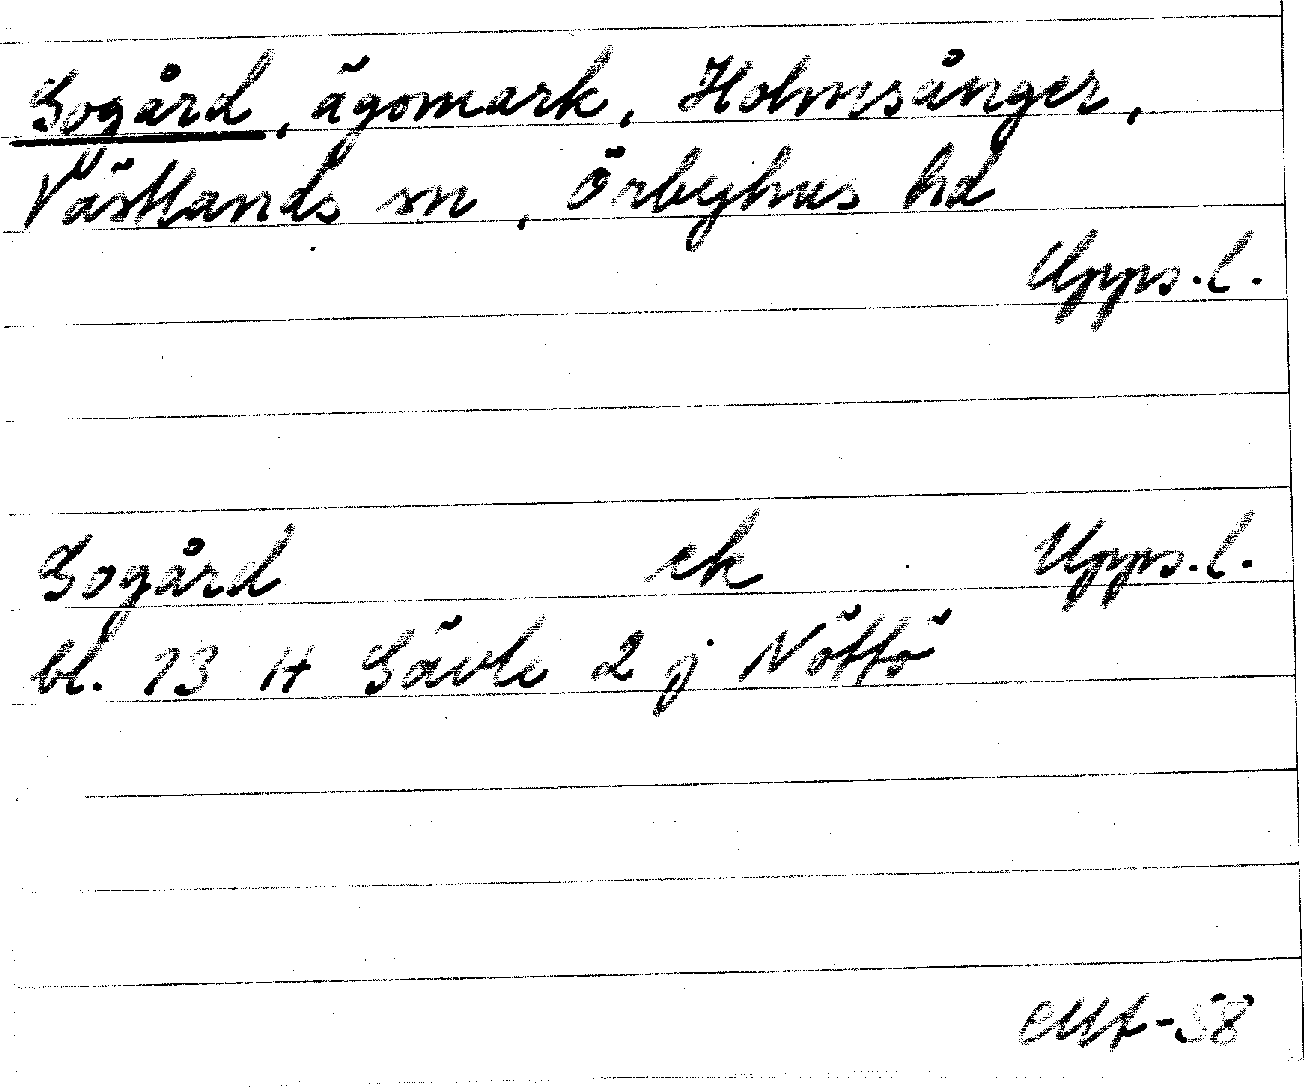 Gogård, ägomark, Holmsånger,
Västlands sn, Örbyhus hd
Upps.l.
Gogård ek Upps.l.
bl. 13 H Gävle 2 j Nöttö